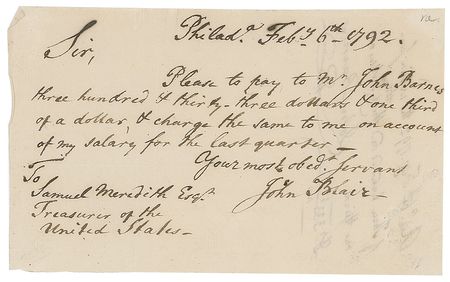 Philada. Feby. 6th 1792.
Sir,
Please to pay to Mr. John Barnes
three hundred & thirty-three dollars & one third
of a dollar, & charge the same to me on account
of my salary for the last quarter—
Your most obedt. servant
John Blair—
To
Samuel Meredith Esqr.
Treasurer of the
United States—